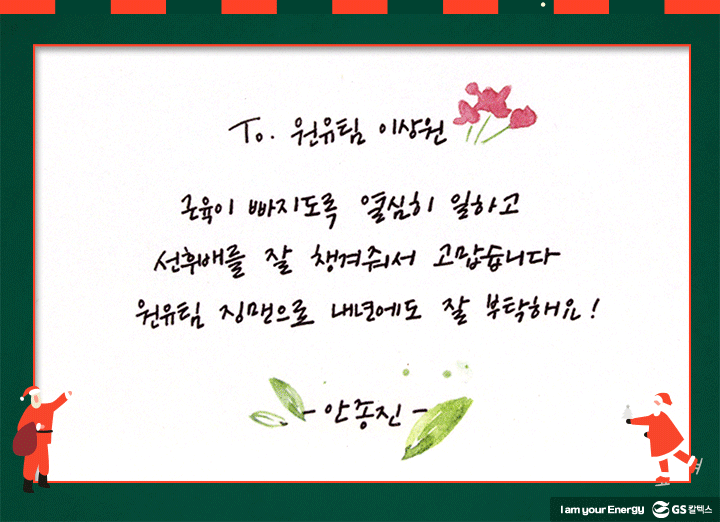 To. 원유팀 이상원
근육이 빠지도록 열심히 일하고
선후배를 잘 챙겨줘서 고맙습니다
원유팀 징맨으로 내년에도 잘 부탁해요!
- 안종진 -
I am your Energy GS 칼텍스